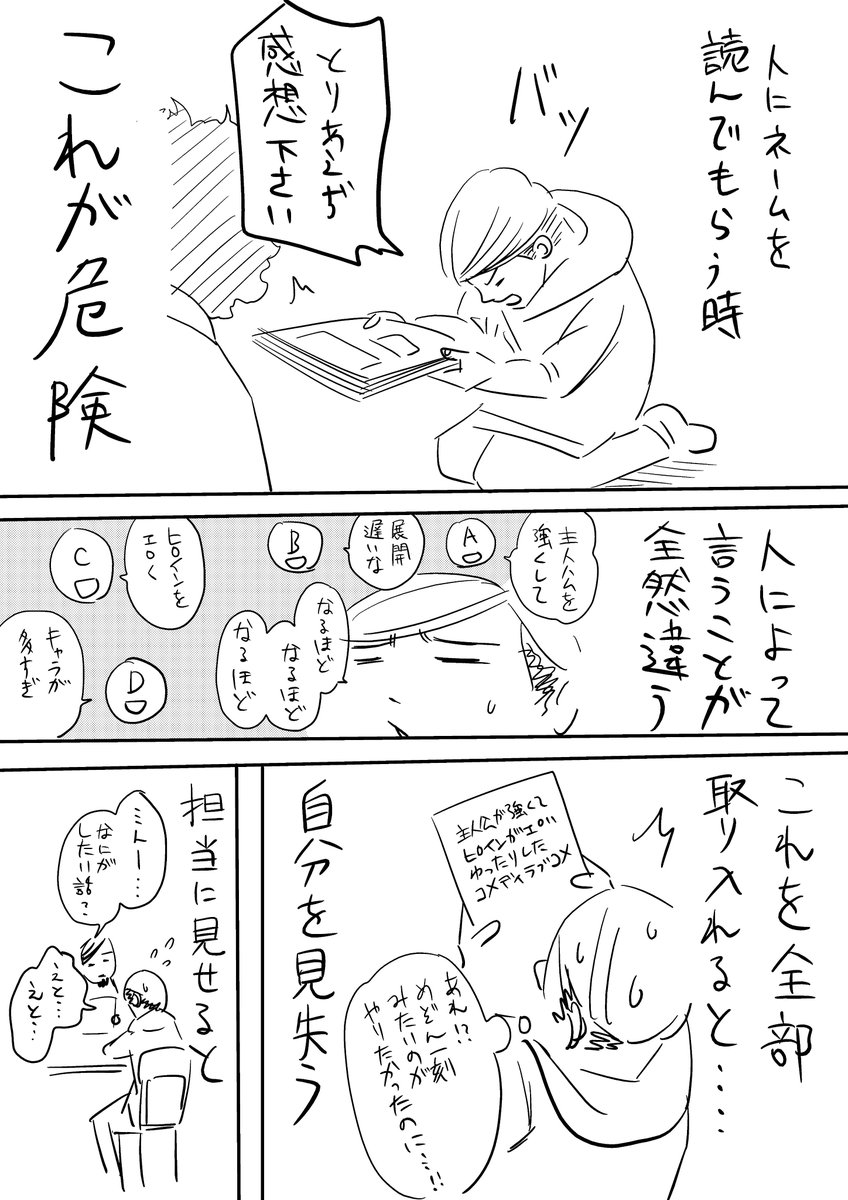 人にネームを
読んでもらう時
バッ
とりあえず
感想下さい
これが危険
人によって
言うことが
全然違う
主人公を
強くして
A
展開
遅いな
B
ヒロインを
エロく
C
キャラが
多すぎ
D
なるほど
なるほど
なるほど
これを全部
取り入れると‥‥‥
主人公が強くて
ヒロインがエロい
ゆったりした
コメディラブコメ
あれ!?
めぞん一刻
みたいのが
やりたかったのに…!!
自分を見失う
担当に見せると
ミトー…
なにが
したい話?
えと…
えと…